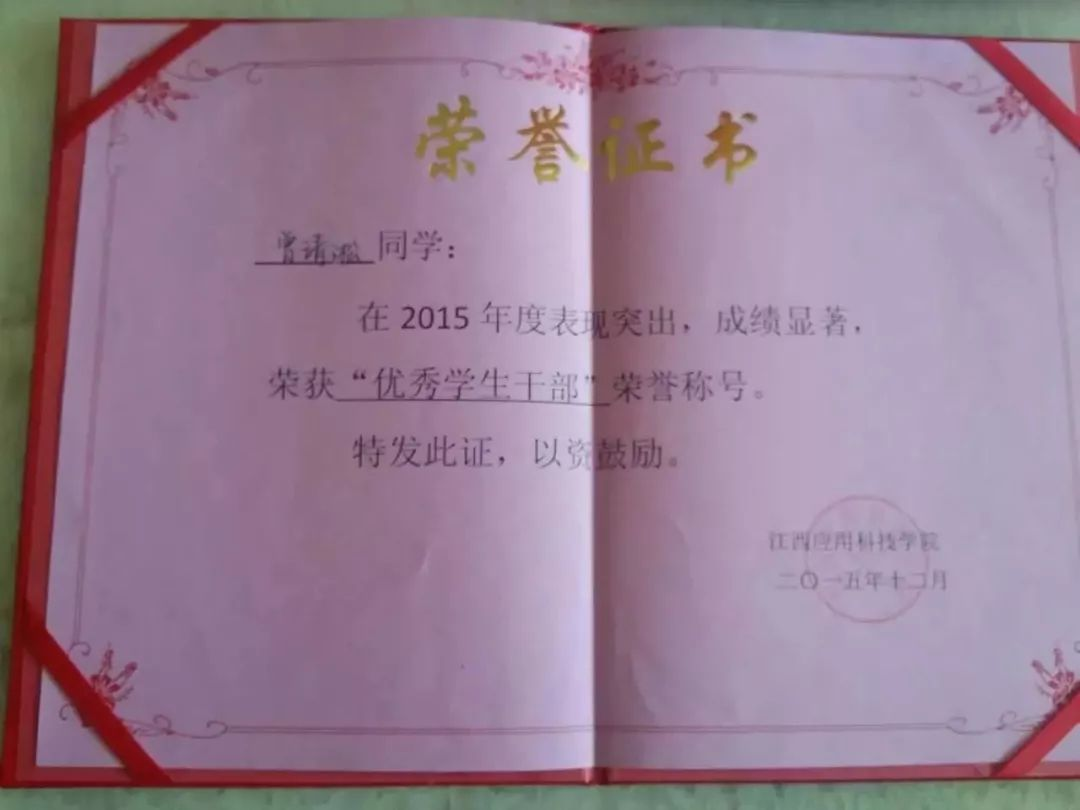 荣誉证书
曾靖 同学：
在 2015 年度表现突出，成绩显著，
荣获“优秀学生干部”荣誉称号。
特发此证，以资鼓励。
江西应用科技学院
二〇一五年十二月